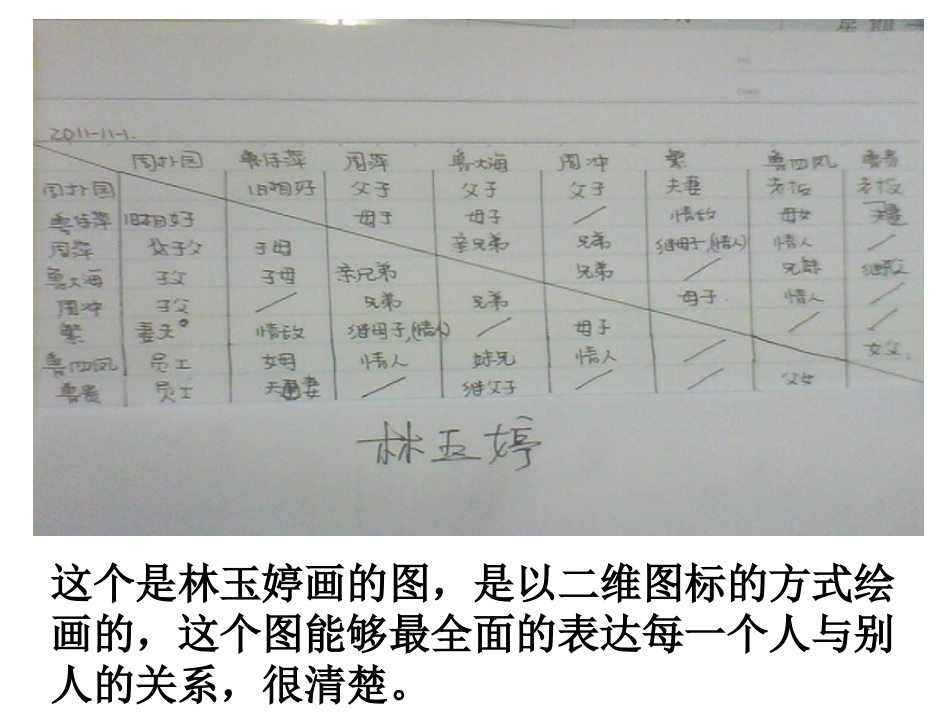 星期一
2011-11-1.
周扑园 鲁侍萍 周萍 鲁大海 周冲 繁 鲁四凤 鲁贵
周扑园 旧相好 父子 父子 父子 夫妻 老板 老板
鲁侍萍 旧相好 母子 母子 / 情敌 母女
周萍 子父 子母 亲兄弟 兄弟 继母子,(情人) 情人 /
鲁大海 子父 子母 亲兄弟 兄弟 / 兄妹 继父
周冲 子父 / 兄弟 兄弟 母子. 情人 /
繁 妻夫 情敌 继母子,(情人) / 母子 / /
鲁四凤 员工 女母 情人 妹兄 情人 / 女父.
鲁贵 员工 夫妻 / 继父子 / / 父女
林玉婷
这个是林玉婷画的图，是以二维图标的方式绘
画的，这个图能够最全面的表达每一个人与别
人的关系，很清楚。